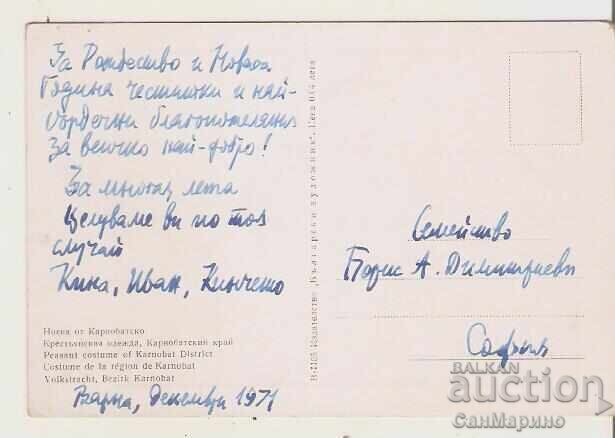 За Рождество и Новата
Година честитки и най-
сърдечни благопожелания
за всичко най-добро!
За много лета
Целуваме ви по тоз
случай
Кина, Иван, Кинчето
Носия от Карнобатско
Крестьянская одежда, Карнобатский край
Peasant costume of Karnobat District
Costume de la région de Karnobat
Volkstracht, Bezirk Karnobat
Варна, Декември 1971
Издателство „Български художник“. Цена 0.04 лева
Семейство
Борис А. Димитриеви
София
BALKAN
auction
СанМарино